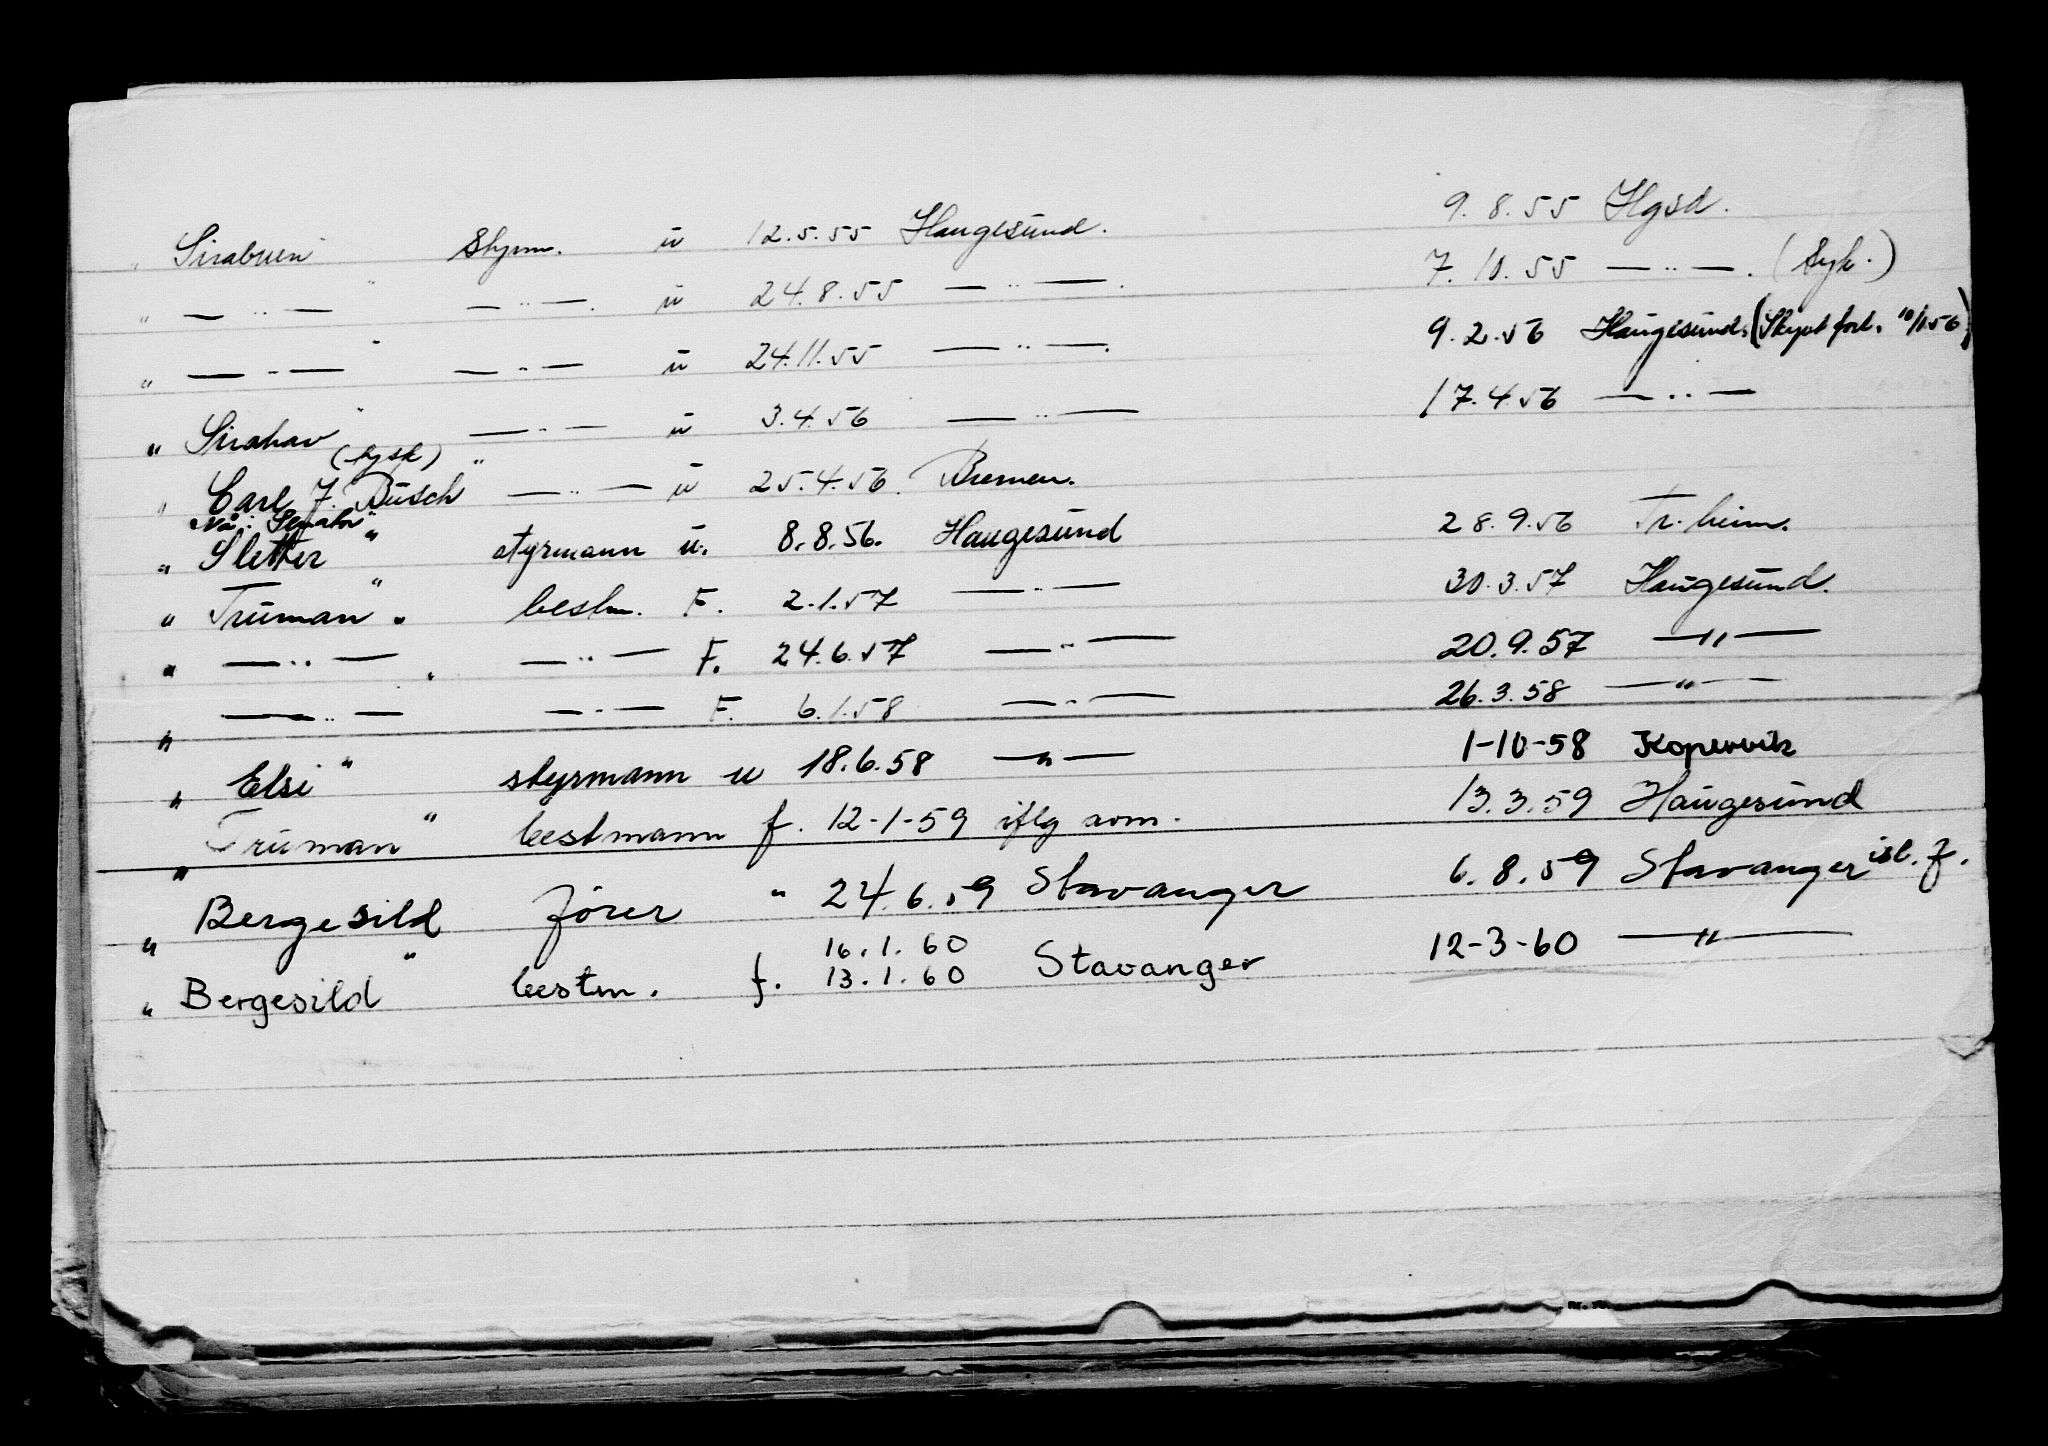 „ Sirabuen" styrm. u 12.5.55 Haugesund. 9.8.55 Hgsd.
„ — „ — " — „ —. u 24.8.55 — „ —. 7.10.55 — „ —. (syk.)
„ — „ — " — „ — u 24.11.55 — „ —. 9.2.56 Haugesund. (Skyst forl. 10/1.56)
„ Sirahav" — „ — u 3.4.56 — „ — 17.4.56 — „ —
(tysk)
„ Carl J. Busch" — „ — u 25.4.56. Bremen.
Nå: Senator"
„ Sletter" styrmann u. 8.8.56. Haugesund 28.9.56 Tr.heim.
„ Truman". bestm. F. 2.1.57 — „ — 30.3.57 Haugesund.
„ — „ — " — „ — F. 24.6.57 — „ — 20.9.57 — „ —
„ — „ — — „ — F. 6.1.58 — „ — 26.3.58 — „ —
„ Elsi" styrmann u 18.6.58 — „ — 1-10-58 Kopervik
„ Truman" bestmann f. 12-1-59 iflg avm. 13.3.59 Haugesund
„ Bergesild" fører „ 24.6.59 Stavanger 6.8.59 Stavanger isl. f.
16.1.60
„ Bergesild" bestm. f. 13.1.60 Stavanger 12-3-60 — „ —